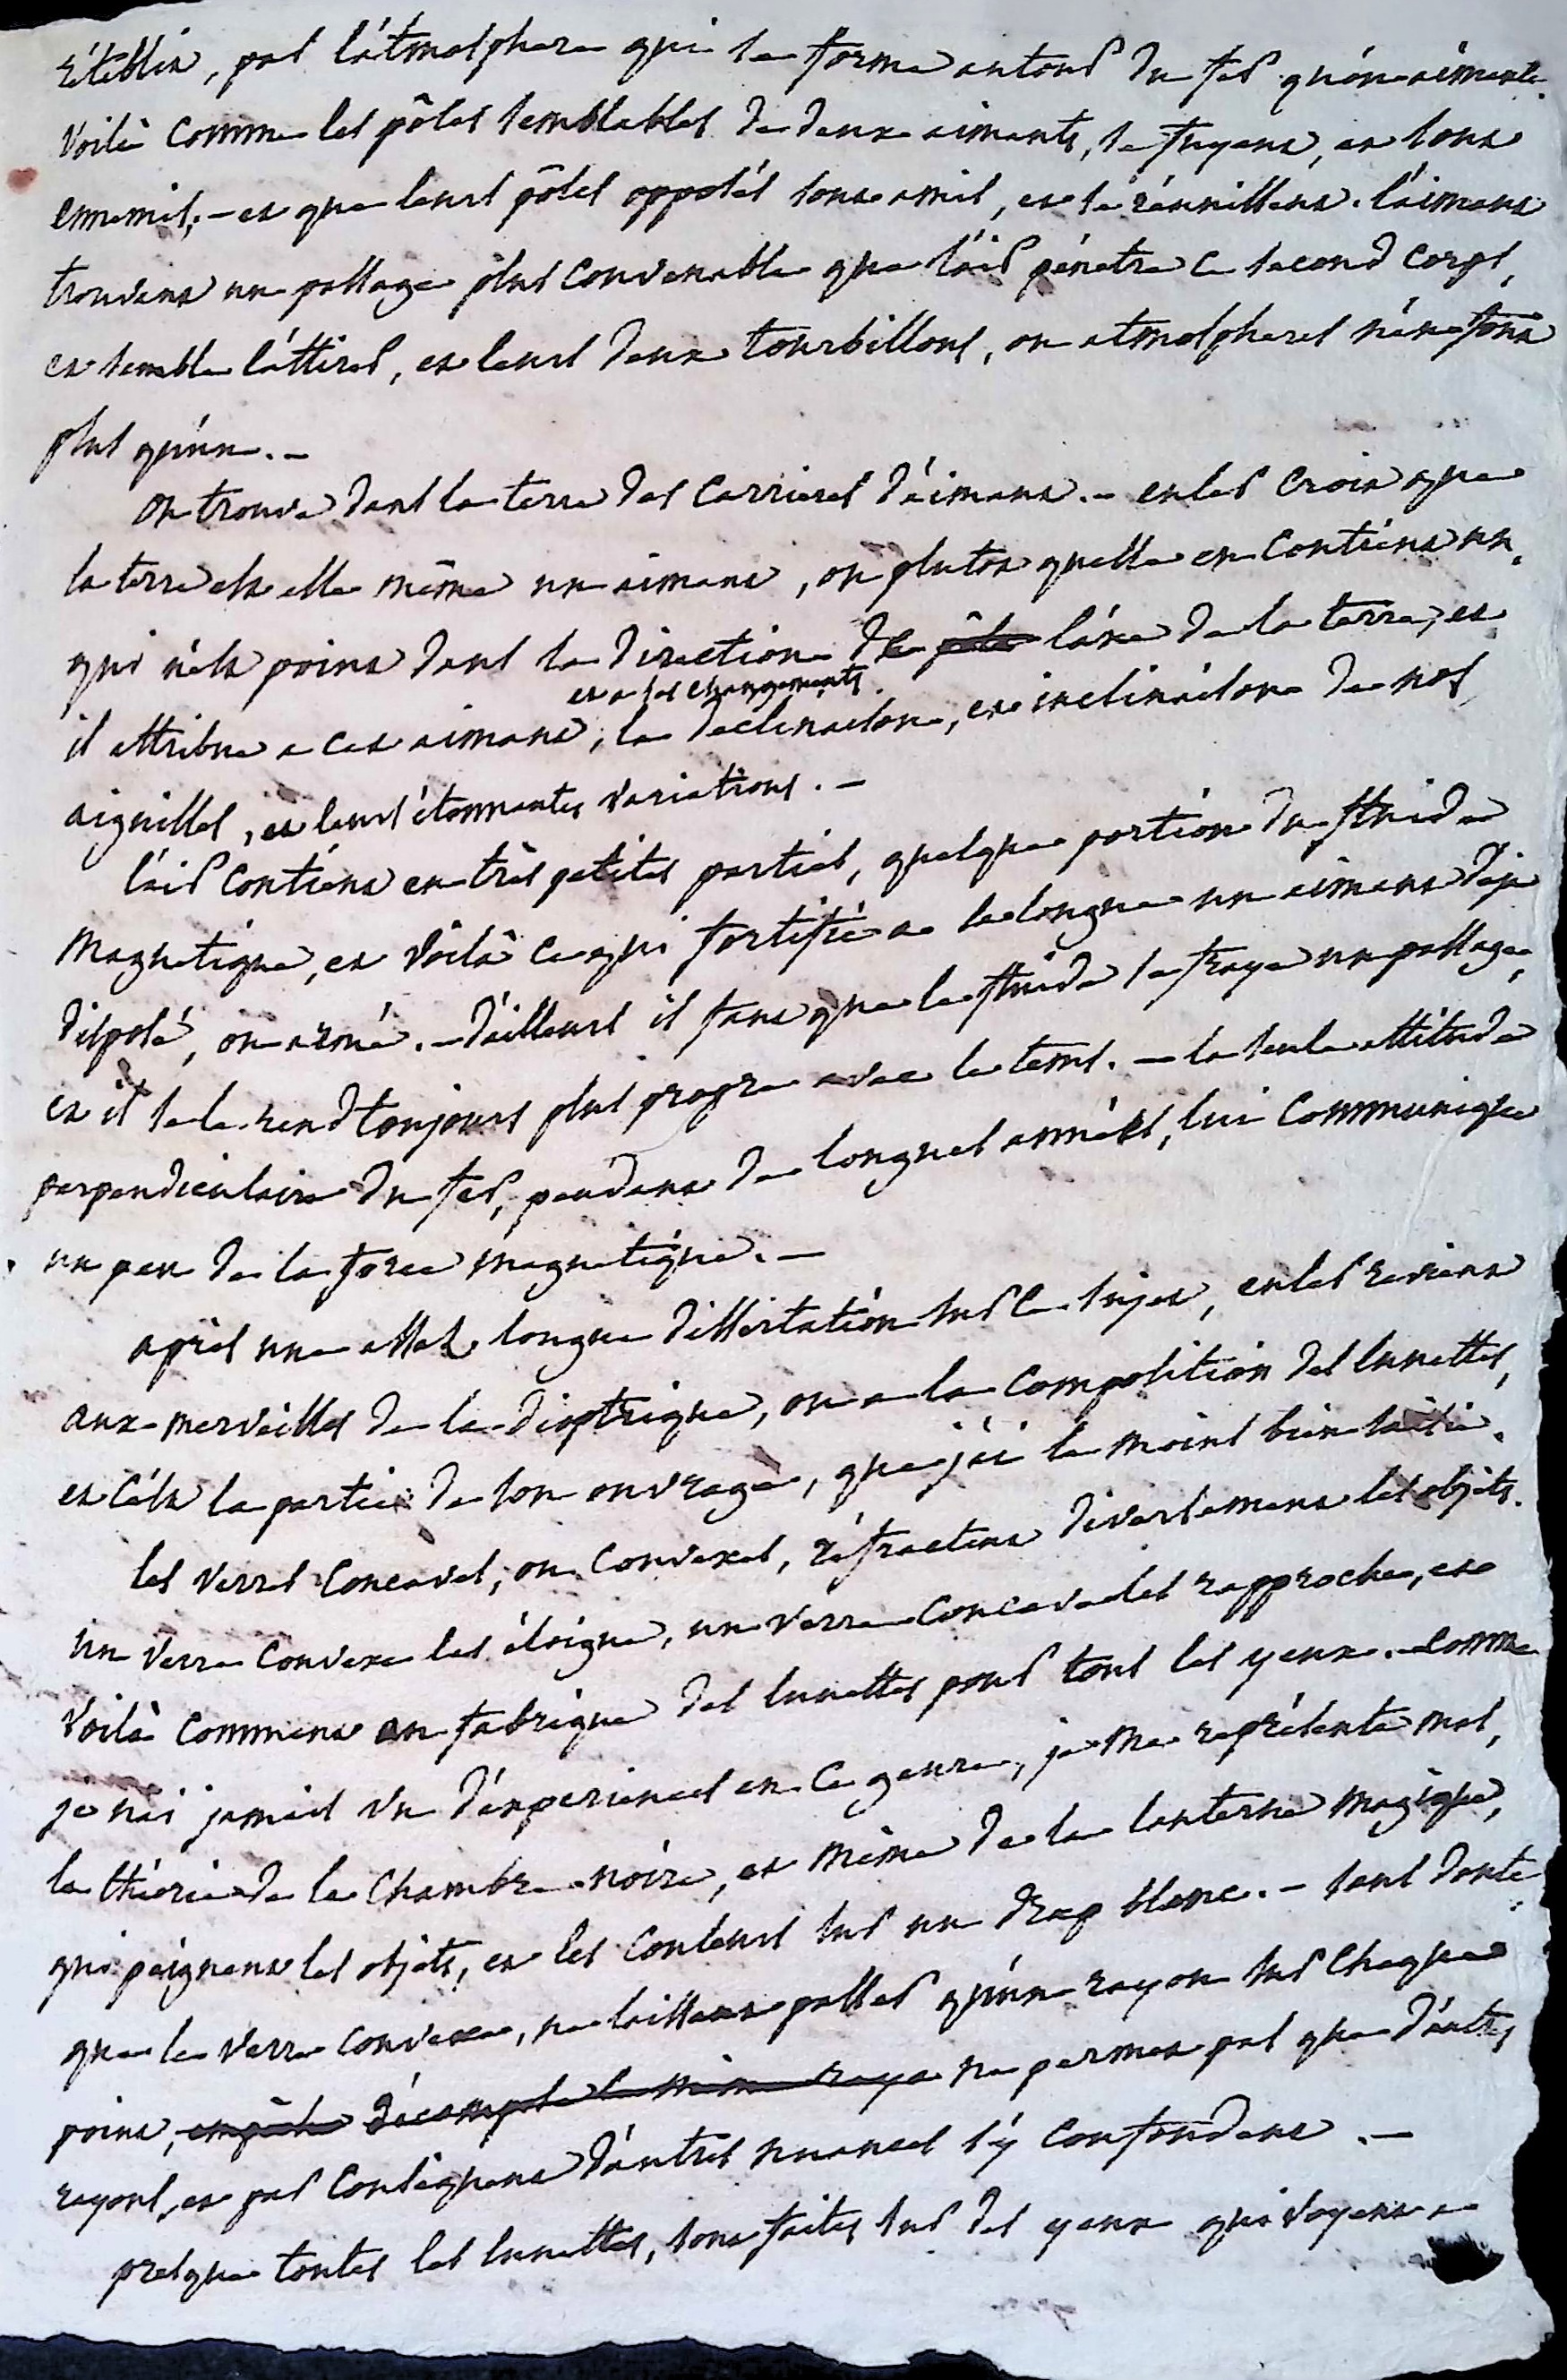 rétablir, par l'atmosphere qui se forme autour du fer qu'on aimante.
voila comme les pôles semblables de deux aimants, se fuyent, et sont
ennemis, - et que leurs pôles opposés sont amis, et se réunissent. l'aimant
trouvant un passage plus convenable que l'air pénetre ce second corps,
et semble l'attirer, et leurs deux tourbillons, ou atmospheres n'en font
plus qu'un. -
on trouve dans la terre des carrieres d'aimant. - euler croit que
la terre est elle même un aimant, ou plutot qu'elle en contient un,
qui n'est point dans la direction de pôle l'axe de la terre, et
et a ses changements
il attribue a cet aimant, la declinaison, et inclinaison de nos
aiguilles, et leurs étonnantes variations. -
l'air contient en très petites parties, quelque portion du fluide
magnetique, et voilà ce qui fortifie a la longue un aimant deja
disposé, ou armé. - d'ailleurs il faut que le fluide se fraye un passage,
et il se le rend toujours plus propre avec le tems. - la seule attitude
perpendiculaire du fer, pendant de longues années, lui communique
un peu de la force magnetique. -
après une assez longue dissertation sur ce sujet, euler revient
aux merveilles de la dioptrique, ou a la composition des lunettes,
et c'est la partie de son ouvrage, que j'ai le moins bien saisie.
les verres concaves, ou convexes, réfractent diversement les objets.
un verre convexe les éloigne, un verre concave les rapproche, et
voilà comment on fabrique des lunettes pour tous les yeux. - comme
je n'ai jamais vu d'experiences en ce genre, je me représente mal,
la théorie de la chambre noire, et même de la lanterne magique,
qui peignent les objets, et les couleurs sur un drap blanc. - sans doute
que le verre convexe, ne laissant passer qu'un rayon sur chaque
point, empêche décompose le même rayo ne permet pas que d'autres
rayons, et par conséquent d'autres nuances s'y confondent. -
presque toutes les lunettes, sont faites sur des yeux qui voyent a